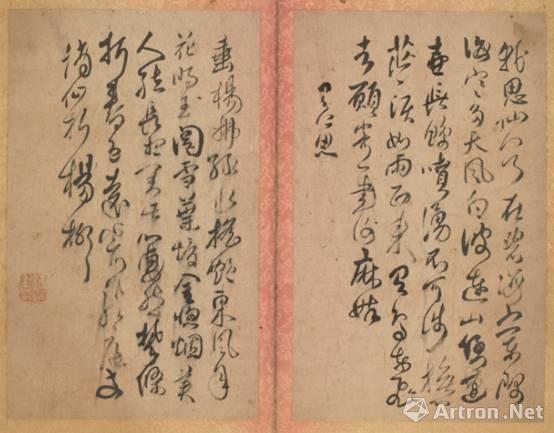 我思仙人乃在碧海之東隅
海寒多天風白波連山倒蓬
壺長鯨噴湧不可涉撫心
茫茫淚如雨西來青鳥東飛
去願寄一書謝麻姑
思
垂楊拂綠水搖艷東風年
花明玉關雪葉暖金窗煙美
人結長想對此心淒然攀條
折春色遠寄龍庭
謫仙折楊柳
Artron.Net